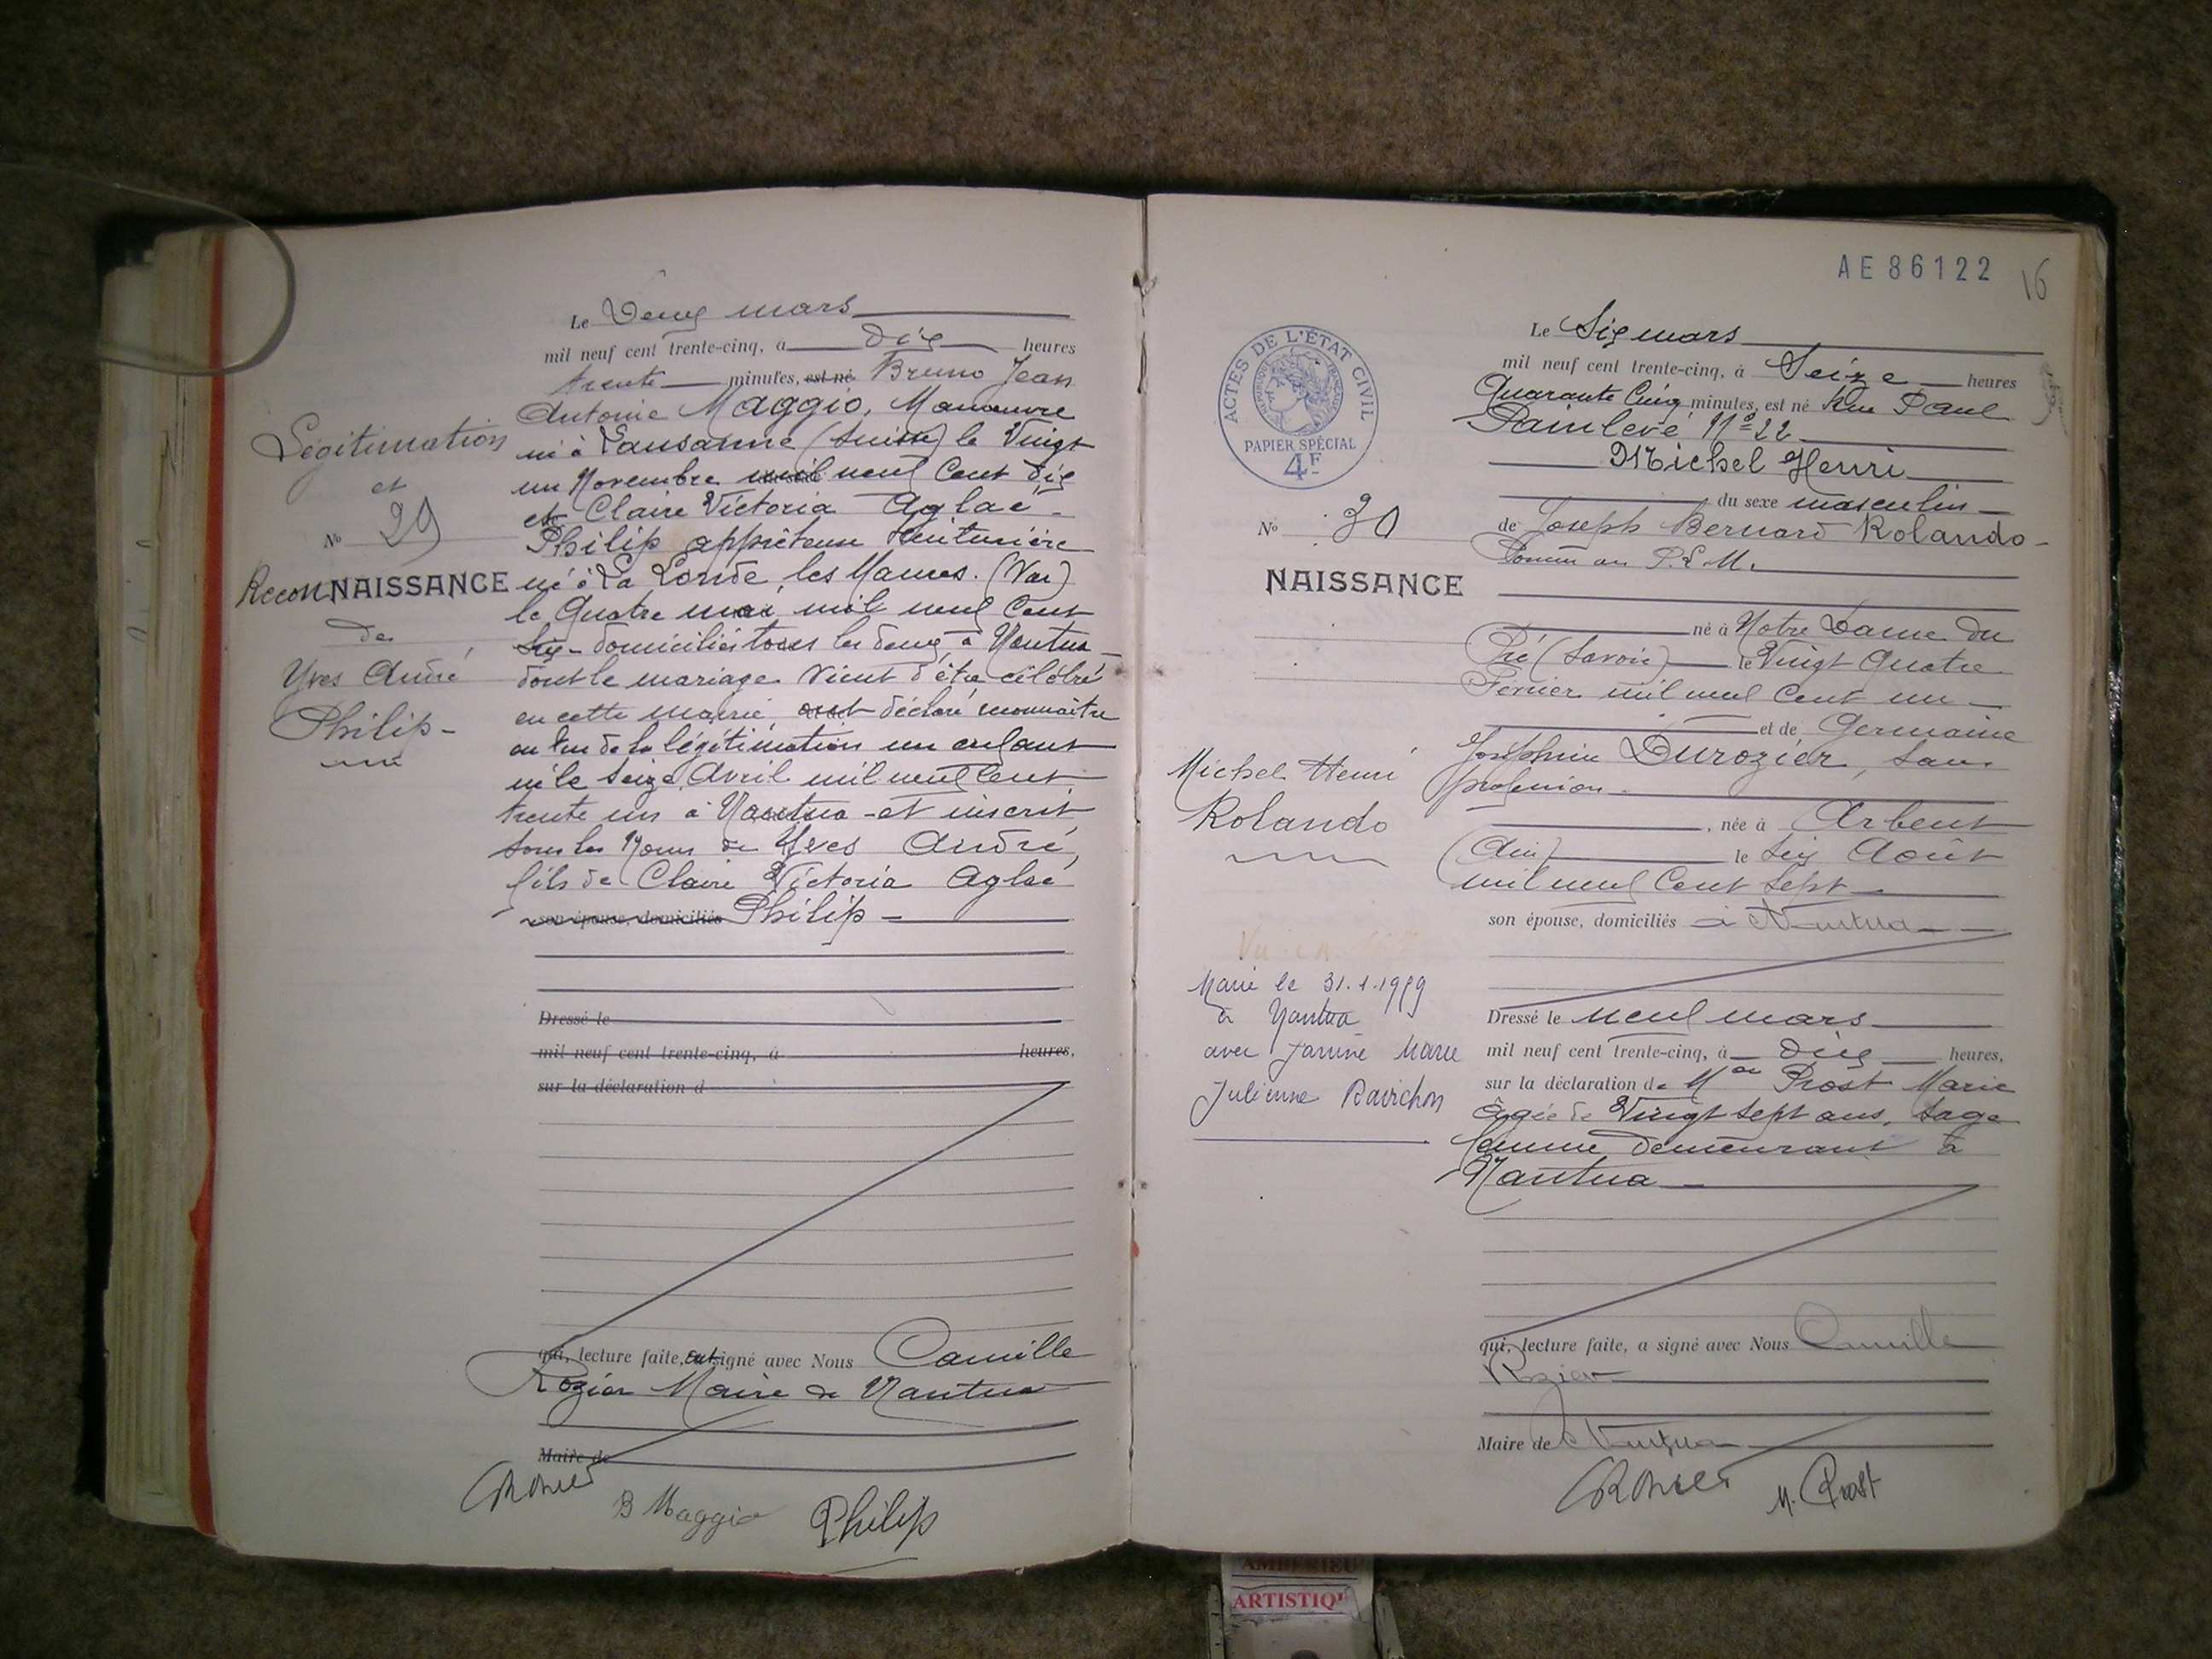 Le Deux mars
mil neuf cent trente-cinq, à Dix heures
trente minutes, est né Bruno Jean
Antonie Maggio, Manœuvre
né à Lausanne (Suisse) le Vingt
un Novembre mil neuf Cent dix
et Claire Victoria Aglaé
Philip apprêteuse teinturière
né à La Londe les Maures. (Var)
le Quatre mai mil neuf Cent
Six - domiciliés tous les deux à Nantua
dont le mariage vient d'être célébré
en cette mairie, ont déclaré reconnaître
en vue de la légitimation un enfant
né le seize Avril mil neuf Cent
trente un à Nantua - et inscrit
sous les Noms de Yves André,
fils de Claire Victoria Aglaé
son épouse, domiciliés Philip -
Dressé le
mil neuf cent trente-cinq, à heures,
sur la déclaration d
qui, lecture faite, ont signé avec Nous Camille
Rozier Maire de Nantua
Maire de
CRozier
B Maggio
Philip
Légitimation
et
No 29
ReconNAISSANCE
de
Yves André
Philip -
AE 86122
16
ACTES DE L'ÉTAT CIVIL
PAPIER SPÉCIAL
4F
No 30
NAISSANCE
Michel Henri
Rolando
Marié le 31.1.1959
à Nantua
avec Janine Marie
Julienne
Le Six mars
mil neuf cent trente-cinq, à Seize heures
Quarante Cinq minutes, est né Rue Paul
Painlevé No 22
Michel Henri
du sexe masculin
de Joseph Bernard Rolando -
Commis au P.L.M.
né à Notre Dame du
Pré (Savoie) le Vingt Quatre
Février mil neuf Cent un
et de Germaine
Joséphine Durozier, sans
profession -
, née à Arbent
(Ain) le Six Août
mil neuf Cent Sept
son épouse, domiciliés à Nantua
Dressé le neuf mars
mil neuf cent trente-cinq, à Dix heures,
sur la déclaration de Mme Prost Marie
Âgée de Vingt sept ans, sage
femme demeurant à
Nantua
qui, lecture faite, a signé avec Nous Camille
Rozier
Maire de Nantua
CRozier
M. Prost
AMBERIEU
ARTISTIQ